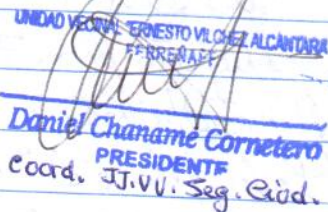 UNIDAD VECINAL "ERNESTO VILCHEZ ALCANTARA
FERREÑAFE
Daniel Chanamé Cornetero
PRESIDENTE
Coord. JJ.VV. Seg. Ciud.